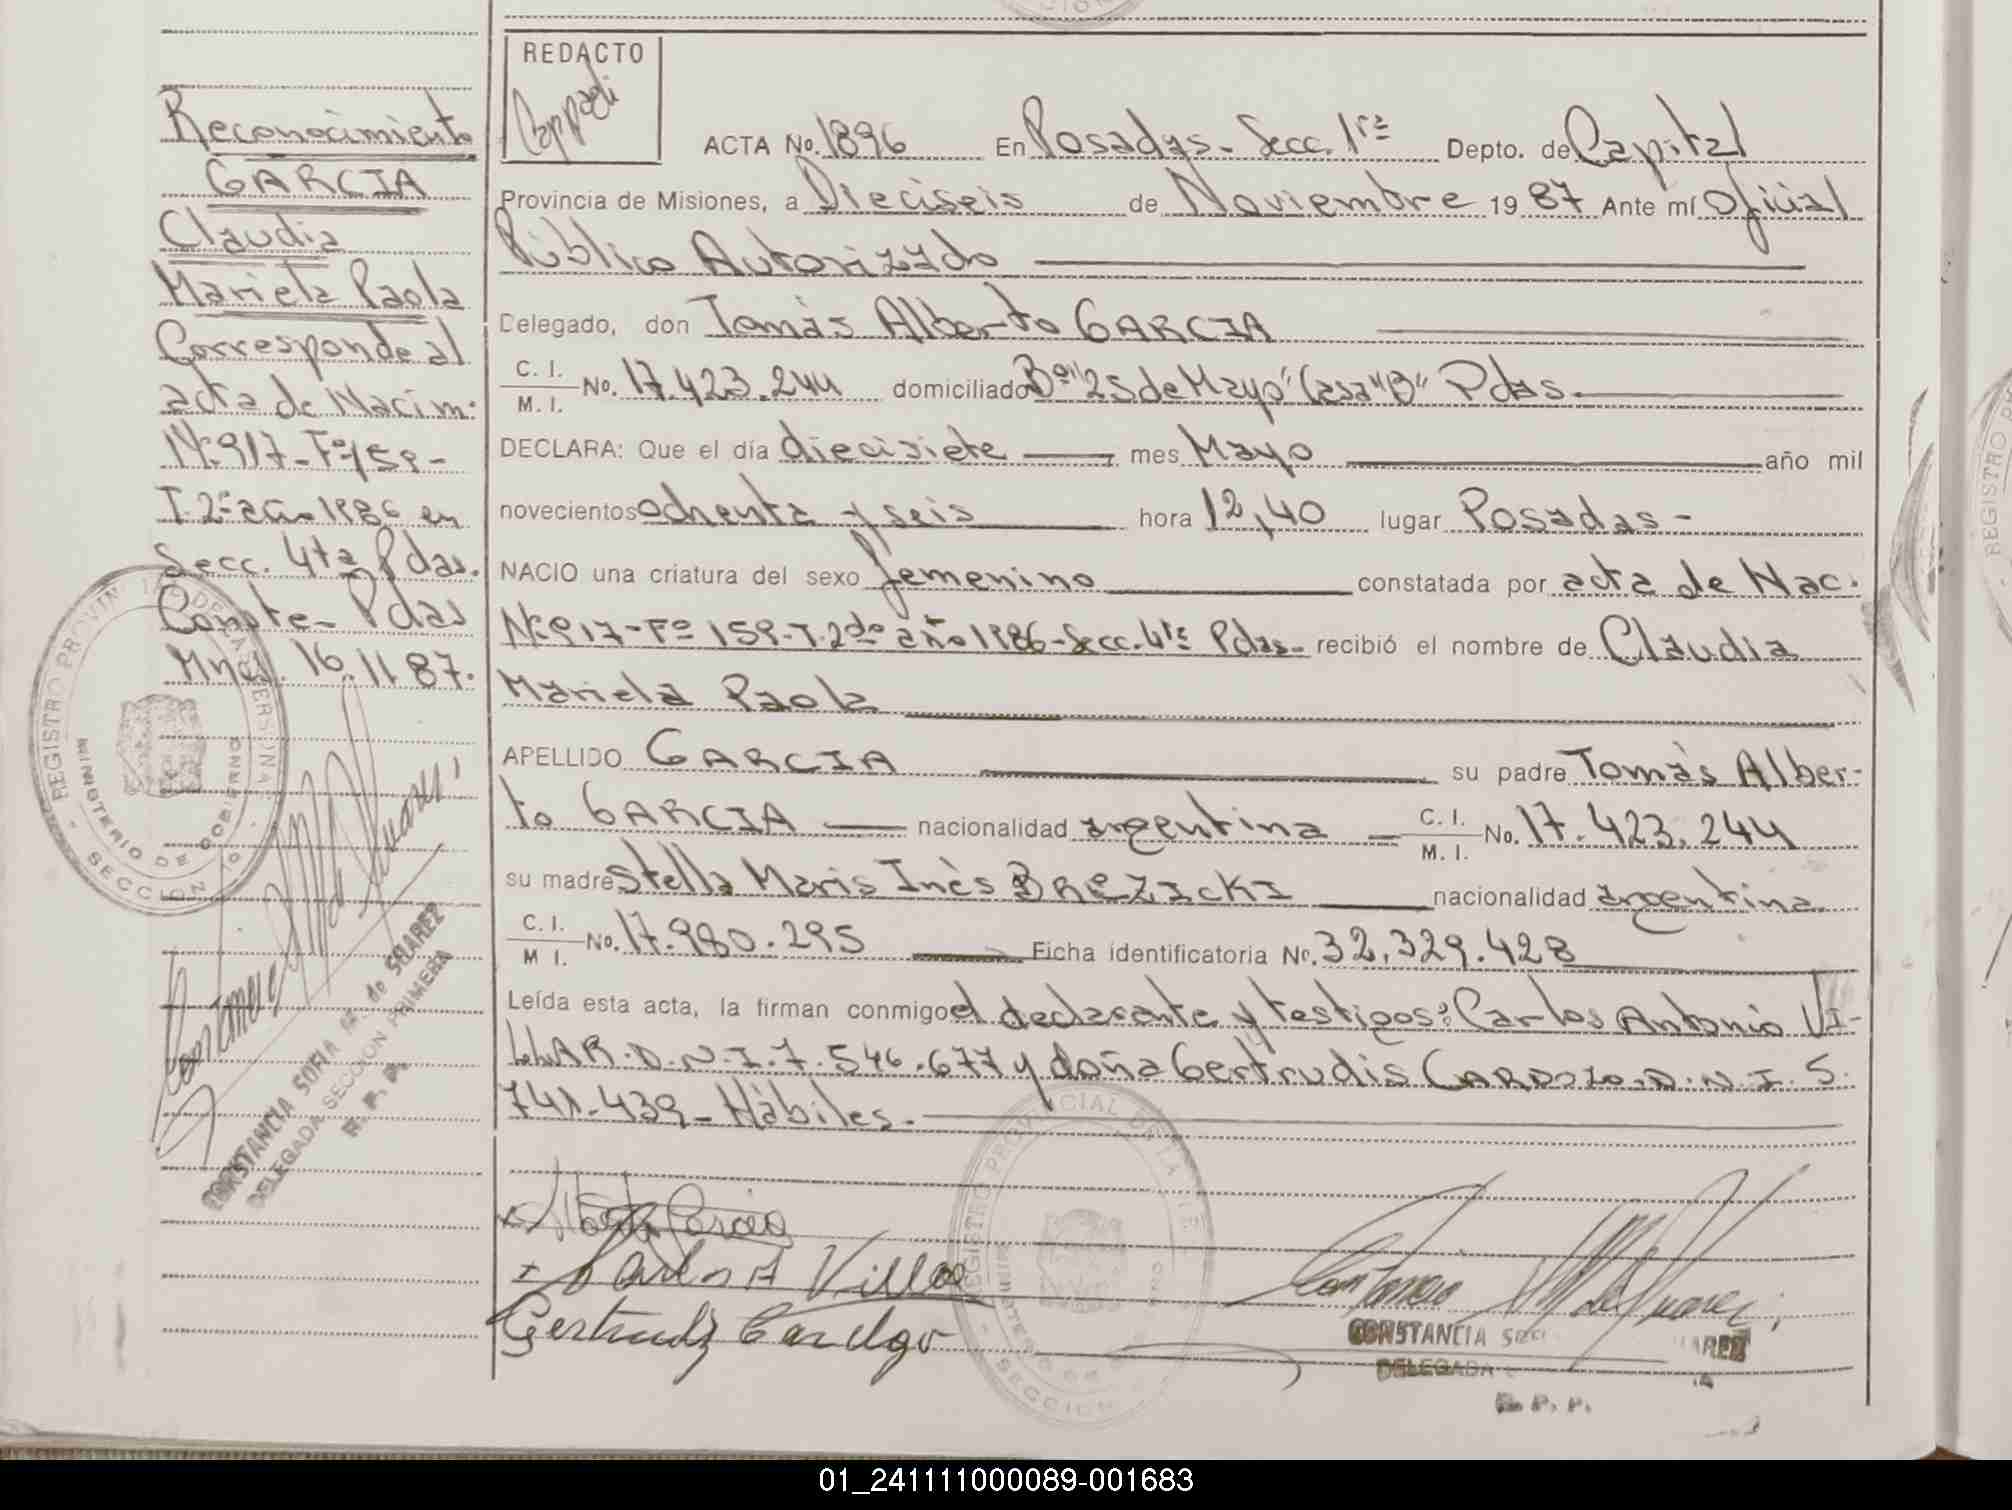 REDACTO
Reconocimiento
GARCIA
Claudia
Mariela Paola
Corresponde al
acta de Nacim.
Nº 917-Fº 159-
T.2º año 1986 en
Secc. 4ta Pdas.
Conste- Pdas
Mnes. 16.11.87.
ACTA No. 1896 En Posadas- Secc. 1ra Depto. de Capital
Provincia de Misiones, a Dieciseis de Noviembre 19 87 Ante mí Oficial
Público Autorizado
Delegado, don Tomás Alberto GARCIA
C. I.
M. I. No. 17.423.244 domiciliado Bº "25 de Mayo" Casa "B" Pdas.
DECLARA: Que el día diecisiete mes Mayo año mil
novecientos ochenta y seis hora 12,40 lugar Posadas-
NACIO una criatura del sexo femenino constatada por acta de Nac.
Nº 917-Fº 159-T.2do año 1986-Secc. 4ta Pdas- recibió el nombre de Claudia
Mariela Paola
APELLIDO GARCIA su padre Tomás Alber-
to GARCIA nacionalidad argentina C. I.
M. I. No. 17.423.244
su madre Stella Maris Inés BREZICKI nacionalidad argentina
C. I.
M I. No. 17.980.295 Ficha identificatoria Nr. 32.329.428
Leída esta acta, la firman conmigo el declarante y testigos: Carlos Antonio VI-
LLAR. D.N.I. 7.546.677 y doña Gertrudis CARDOZO. D.N.I. 5.
741.439- Hábiles.-
Carlos A Villar
REGISTRO PROVINCIAL DE LAS PERSONAS
MINISTERIO DE GOBIERNO
SECCION 1a
CONSTANCIA SOFIA M. de SUAREZ
DELEGADA SECCION PRIMERA
R. P. P.
CONSTANCIA
DELEGADA
R. P. P.
01_241111000089-001683